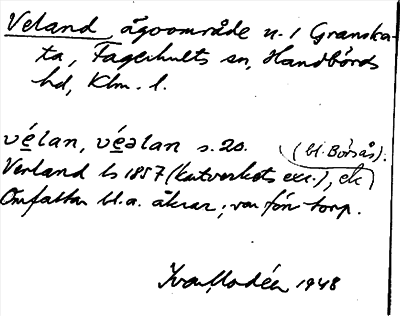 Veland, ägoområde u. 1 Granska-
ta, Fagerhults sn, Handbörds
hd, Klm. l.
vélan, véəlan s. 20. (bl. Börsås).
Verland ls 1857 (kartverkets exc.), ek
Omfattar bl.a. åkrar; var förr torp.
Ivar Modéer 1948